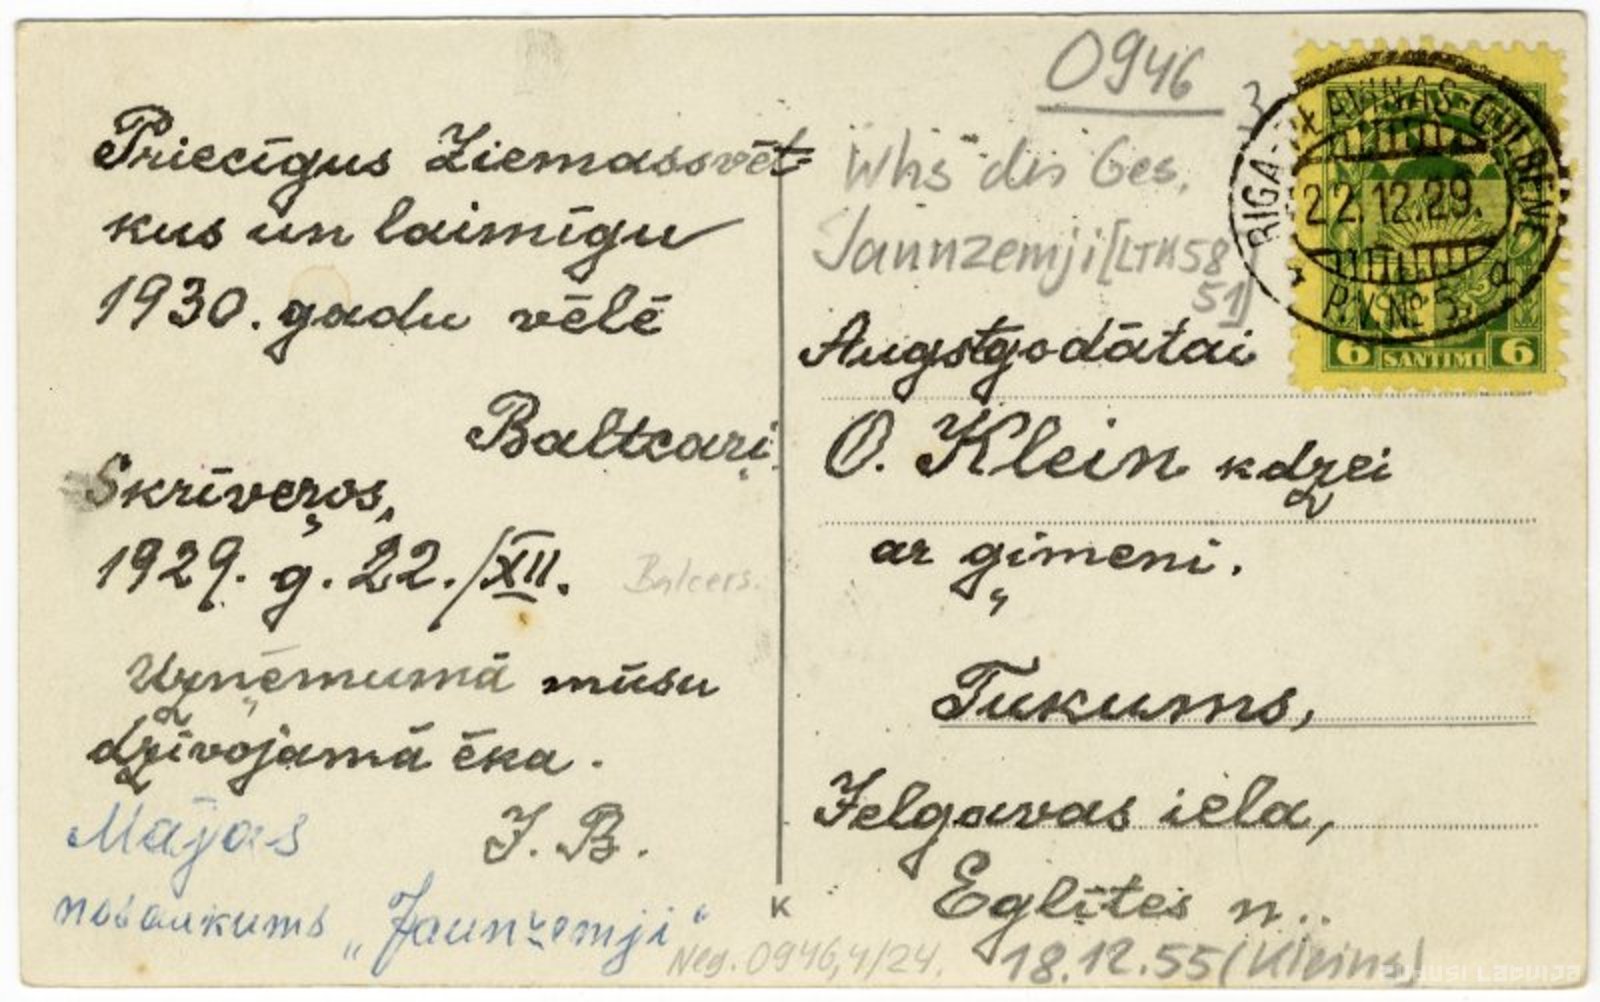 Priecīgus Ziemassvēt-
kus un laimīgu
1930. gadu vēlē
Baltcaŗi.
Skrīveŗos,
1929. g. 22./XII.
Balcers.
Uzņēmumā mūsu
dzīvojamā ēka.
J. B.
Mājas
nosaukums „Jaunzemji“
K
0946
Whs dis Ges.
Jaunzemji [LTK58
51]
RIGA-KALNAS-GULBENE
22.12.29.
P.V.№ 5. a
6 SANTIMI 6
Augstgodātai
O. Klein kdzei
ar ģimeni.
Tukums,
Jelgavas iela,
Eglītes n..
Neg. 0946,4/24.
18.12.55 (Kleins)
ZUDUSI LATVIJA